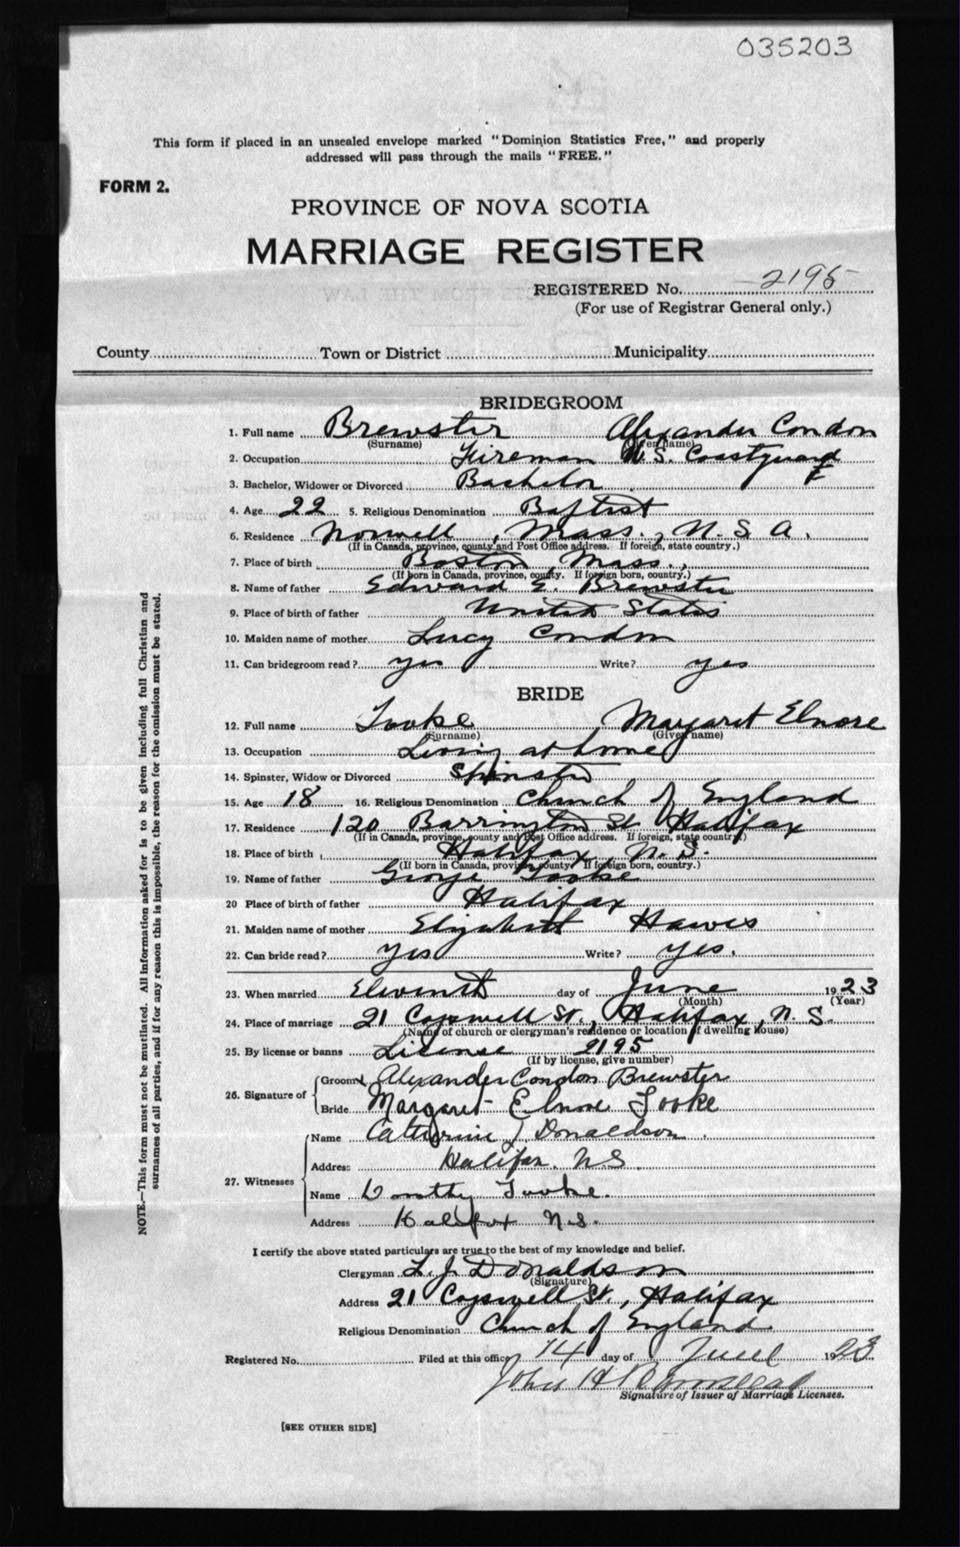 035203
This form if placed in an unsealed envelope marked "Dominion Statistics Free," and properly
addressed will pass through the mails "FREE."
FORM 2.
PROVINCE OF NOVA SCOTIA
MARRIAGE REGISTER
REGISTERED No. 2195
(For use of Registrar General only.)
County Town or District Municipality
BRIDEGROOM
1. Full name Brewster Alexander Condon
(Surname) (Given name)
2. Occupation Fireman U.S. Coastguard
3. Bachelor, Widower or Divorced Bachelor
4. Age 22 5. Religious Denomination Baptist
6. Residence Norwell, Mass., U.S.A.
(If in Canada, province, county and Post Office address. If foreign, state country.)
7. Place of birth Boston Mass.,
(If born in Canada, province, county. If foreign born, country.)
8. Name of father Edward E. Brewster
9. Place of birth of father United States
10. Maiden name of mother Lucy Condon
11. Can bridegroom read? yes Write? yes
BRIDE
12. Full name Tooke Margaret Elnore
(Surname) (Given name)
13. Occupation Living at home
14. Spinster, Widow or Divorced Spinster
15. Age 18 16. Religious Denomination Church of England
17. Residence 120 Barrington St. Halifax
(If in Canada, province, county and Post Office address. If foreign, state country.)
18. Place of birth Halifax N.S.
(If born in Canada, province, county. If foreign born, country.)
19. Name of father George Tooke
20 Place of birth of father Halifax
21. Maiden name of mother Elizabeth Hawes
22. Can bride read? yes Write? yes.
23. When married Eleventh day of June 1923
(Month) (Year)
24. Place of marriage 21 Cogswell St., Halifax, N.S.
(Name of church or clergyman's residence or location of dwelling house)
25. By license or banns License 2195
(If by license, give number)
26. Signature of
Groom Alexander Condon Brewster
Bride Margaret Elnore Tooke
27. Witnesses
Name Catherine J Donaldson.
Address Halifax. N.S.
Name Dorothy Tooke.
Address Halifax N.S.
I certify the above stated particulars are true to the best of my knowledge and belief.
Clergyman L. J. Donaldson
(Signature)
Address 21 Cogswell St., Halifax
Religious Denomination Church of England
Registered No. Filed at this office 14 day of June 1923
John H
Signature of Issuer of Marriage Licenses.
[SEE OTHER SIDE]
NOTE.—This form must not be mutilated. All information asked for is to be given including full Christian and
surnames of all parties, and if for any reason this is impossible, the reason for the omission must be stated.